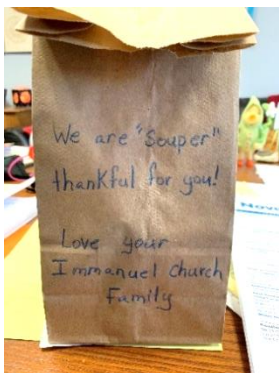 We are "Souper"
thankful for you!
Love your
Immanuel Church
Family